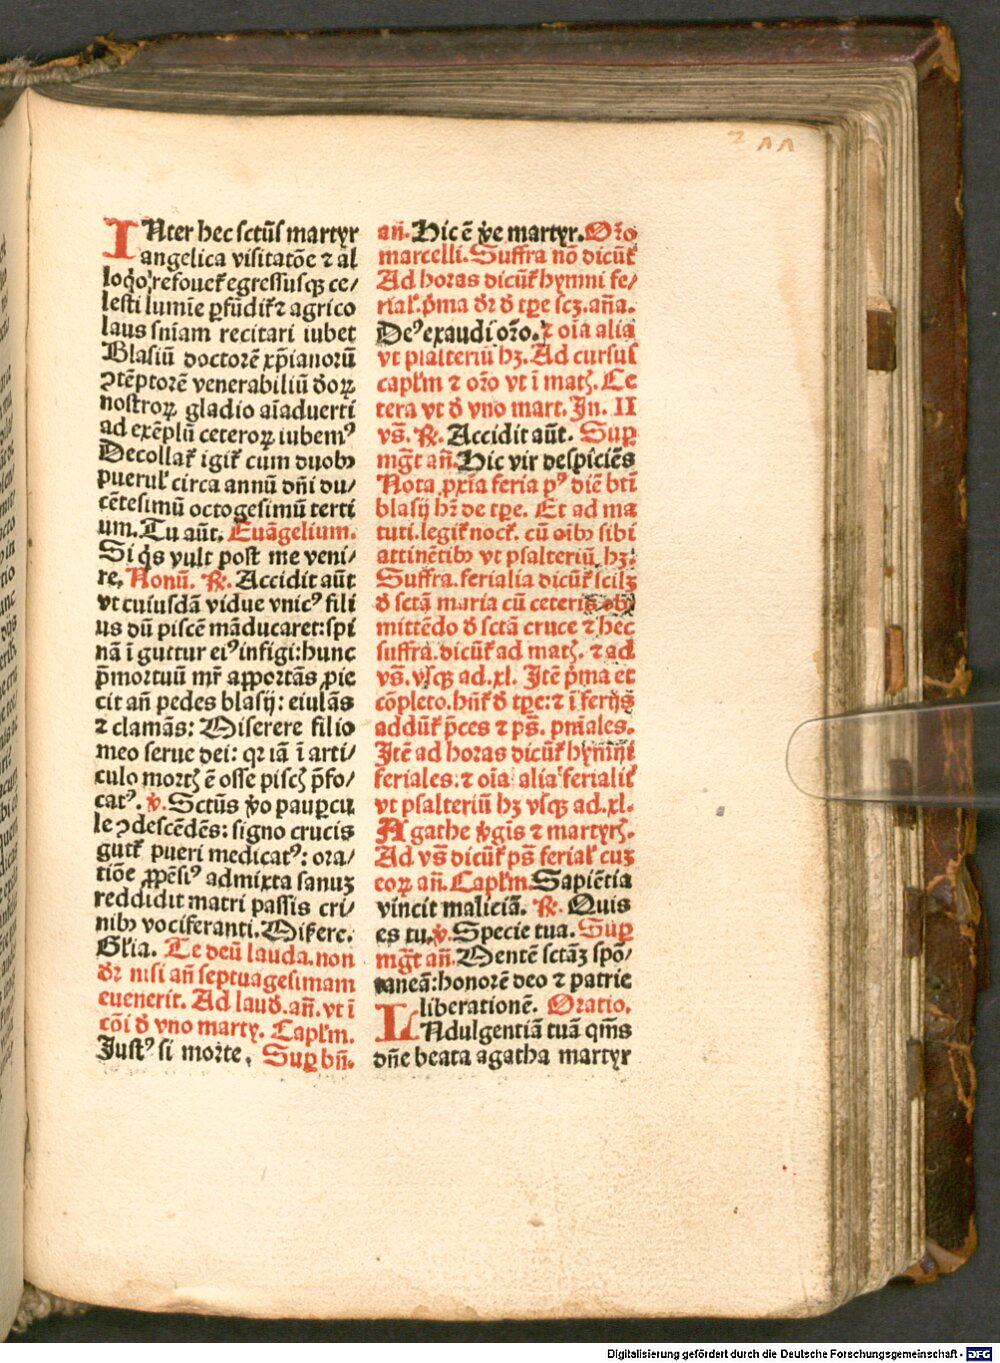 INter hec sctūs martyr
angelica visitatōe ⁊ al
loq̄o refouet̄ egressusq̄ ce/
lesti lumīe ꝑfūdit̄ ⁊ agrico
laus sn̄iam recitari iubet
Blasiū doctorē xp̄ianorū
ↄtēptorē venerabiliū ꝺoꝝ
nostroꝝ gladio aīaduerti
ad exēplū ceteroꝝ iubemꝰ
Decollat̄ igit̄ cum duobꝰ
puerul' circa annū dn̄i du/
cētesimū octogesimū terti
um. Tu aūt. Euāgelium.
Si q̄s vult post me veni/
re. Nonū. ℟. Accidit aūt
vt cuiusdā vidue vnicꝰ fili
us dū piscē māducaret: spi
nā ī guttur eiꝰ infigi: hunc
p̄mortuū mr̄ apportās ꝓie
cit an̄ pedes blasij: eiulās
⁊ clamās: Miserere filio
meo serue dei: qr iā ī arti/
culo mortꝭ ē osse piscꝭ p̄fo/
catꝰ. ℣. Sctūs v̄o pauꝑcu
le ↄdescēdēs: signo crucis
gutt̄ pueri medicatꝰ: ora/
tiōe ꝓpēsiꝰ admixta sanuʒ
reddidit matri passis cri/
nibꝰ vociferanti. Misere.
Gl'ia. Te deū lauda. non
dr̄ nisi an̄ septuagesimam
euenerit. Ad laud. an̄. vt ī
cōi d̄ vno marty. Capl'm.
Justꝰ si morte. Suꝑ bn̄.
an̄. Hic ē v̄e martyr. Or̄o
marcelli. Suffra nō dicūt̄
Ad horas dicūt̄ hymni fe/
rial'. p̄ma dr̄ d̄ tꝑe scʒ. an̄a.
Deꝰ exaudi or̄o. ⁊ oīa alia
vt psalteriū hʒ. Ad cursus
capl'm ⁊ or̄o vt ī matꝭ. Ce
tera vt d̄ vno mart. In. II
vs̄. ℟. Accidit aūt. Suꝑ
mḡt an̄. Hic vir despiciēs
Nota ꝓxīa feria pꝰ diē bt̄i
blasij hr̄ de tꝑe. Et ad ma
tuti. legit̄ noct̄. cū oībꝰ sibi
attinētibꝰ vt psalteriū. hʒ:
Suffra. ferialia dicūt̄ scilʒ
d̄ sctā maria cū ceteris obꝰ
mittēdo d̄ sctā cruce ⁊ hec
suffra. dicūt̄ ad matꝭ. ⁊ ad
vs̄. vsqꝫ ad. xl. Itē p̄ma et
cōpleto. hn̄t̄ d̄ tꝑe: ⁊ ī ferijs
addūt̄ p̄ces ⁊ ps̄. pn̄iales.
Itē ad horas dicūt̄ hymni
feriales. ⁊ oīa alia ferialit̄
vt psalteriū hʒ vsqꝫ ad. xl.
Agathe v̄gīs ⁊ martyrꝭ.
Ad vs̄ dicūt̄ ps̄ ferial' cuʒ
eoꝝ an̄. Capl'm. Sapiētia
vincit maliciā. ℟. Quis
es tu. ℣. Specie tua. Suꝑ
mḡt an̄. Mentē sctāʒ spō/
taneā: honorē deo ⁊ patrie
liberationē. Oratio.
INdulgentiā tuā qm̄s
dn̄e beata agatha martyr
Digitalisierung gefördert durch die Deutsche Forschungsgemeinschaft - DFG